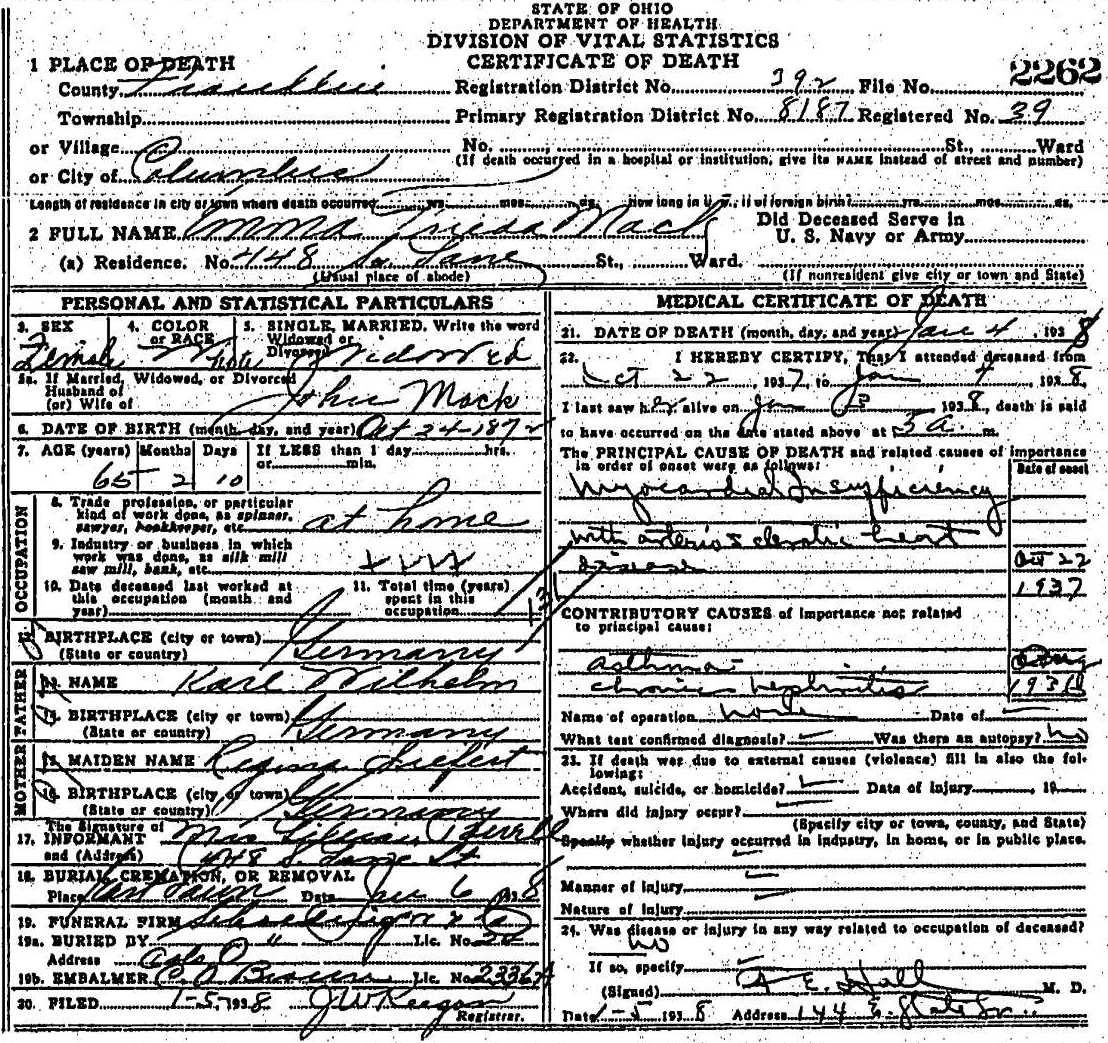 STATE OF OHIO
DEPARTMENT OF HEALTH
DIVISION OF VITAL STATISTICS
CERTIFICATE OF DEATH
2262
1 PLACE OF DEATH
County Franklin Registration District No. 392 File No.
Township Primary Registration District No. 8187 Registered No. 39
or Village No. St., Ward
(If death occurred in a hospital or institution, give its NAME instead of street and number)
or City of Columbus
Length of residence in city or town where death occurred yrs. mos. ds. How long in U.S., if of foreign birth? yrs. mos. ds.
2 FULL NAME Emma Frieda Mack Did Deceased Serve in U. S. Navy or Army
(a) Residence. No. 448 St., Ward.
(Usual place of abode) (If nonresident give city or town and State)
PERSONAL AND STATISTICAL PARTICULARS
3. SEX 4. COLOR or RACE 5. SINGLE, MARRIED, Widowed or Divorced Write the word
Female White Widowed
5a. If Married, Widowed, or Divorced
Husband of
(or) Wife of John Mack
6. DATE OF BIRTH (month, day, and year) Oct 24-1872
7. AGE (years) Months Days If LESS than 1 day hrs.
or min.
65 2 10
OCCUPATION
8. Trade, profession, or particular
kind of work done, as spinner,
sawyer, bookkeeper, etc. at home
9. Industry or business in which
work was done, as silk mill
saw mill, bank, etc.
10. Date deceased last worked at
this occupation (month and
year)
11. Total time (years)
spent in this
occupation
12. BIRTHPLACE (city or town)
(State or country) Germany
FATHER
NAME Karl Wilhelm
BIRTHPLACE (city or town)
(State or country) Germany
MOTHER
15. MAIDEN NAME Regina Siefert
16. BIRTHPLACE (city or town)
(State or country) Germany
The Signature of
17. INFORMANT Mrs Lillian
and (Address) 448 S. St
18. BURIAL, CREMATION, OR REMOVAL
Place East Lawn Date Jan 6 1938
19. FUNERAL FIRM & Co
19a. BURIED BY " Lic. No. 24
Address Cols O
19b. EMBALMER C. O. Brown Lic. No. 2336A
20. FILED 1-5-1938 J W Keegan
Registrar.
MEDICAL CERTIFICATE OF DEATH
21. DATE OF DEATH (month, day, and year) Jan 4, 1938
22. I HEREBY CERTIFY, That I attended deceased from
Oct 22, 1937, to Jan 4, 1938,
I last saw her alive on Jan 3 1938, death is said
to have occurred on the date stated above at 3 a. m.
The PRINCIPAL CAUSE OF DEATH and related causes of importance
in order of onset were as follows:
Date of onset
Myocardial Insufficiency
with arterio sclerotic heart
disease Oct 22
1937
131
CONTRIBUTORY CAUSES of importance not related
to principal cause:
asthma
chronic nephritis
Name of operation none Date of
What test confirmed diagnosis? Was there an autopsy? no
23. If death was due to external causes (violence) fill in also the fol-
lowing:
Accident, suicide, or homicide? Date of injury 19
Where did injury occur?
(Specify city or town, county, and State)
Specify whether injury occurred in industry, in home, or in public place.
Manner of Injury
Nature of Injury
24. Was disease or injury in any way related to occupation of deceased?
no
If so, specify
(Signed) A E. Hall M. D.
Date 1-5 1938 Address 144 E. State St.